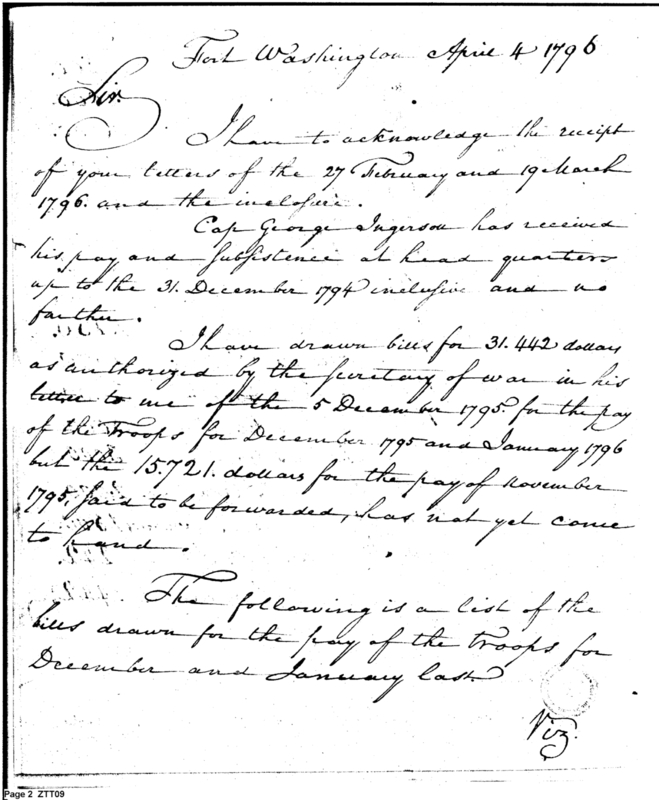 Fort Washington April 4 1796
Sir.
I have to acknowledge the receipt
of your letters of the 27 February and 19 March
1796. and the inclosure.
Cap George Ingersoll has received
his pay and subsistence at head quarters
up to the 31. December 1794 inclusive and no
farther.
I have drawn bills for 31.442 dollars
as authorized by the secretary of war in his
letter to me of the 5 December 1795. for the pay
of the Troops for December 1795 and January 1796
but the 15.721. dollars for the pay of november
1795, said to be forwarded, has not yet come
to hand.
The following is a list of the
bills drawn for the pay of the troops for
December and January last
Viz.
Page 2 ZTT09